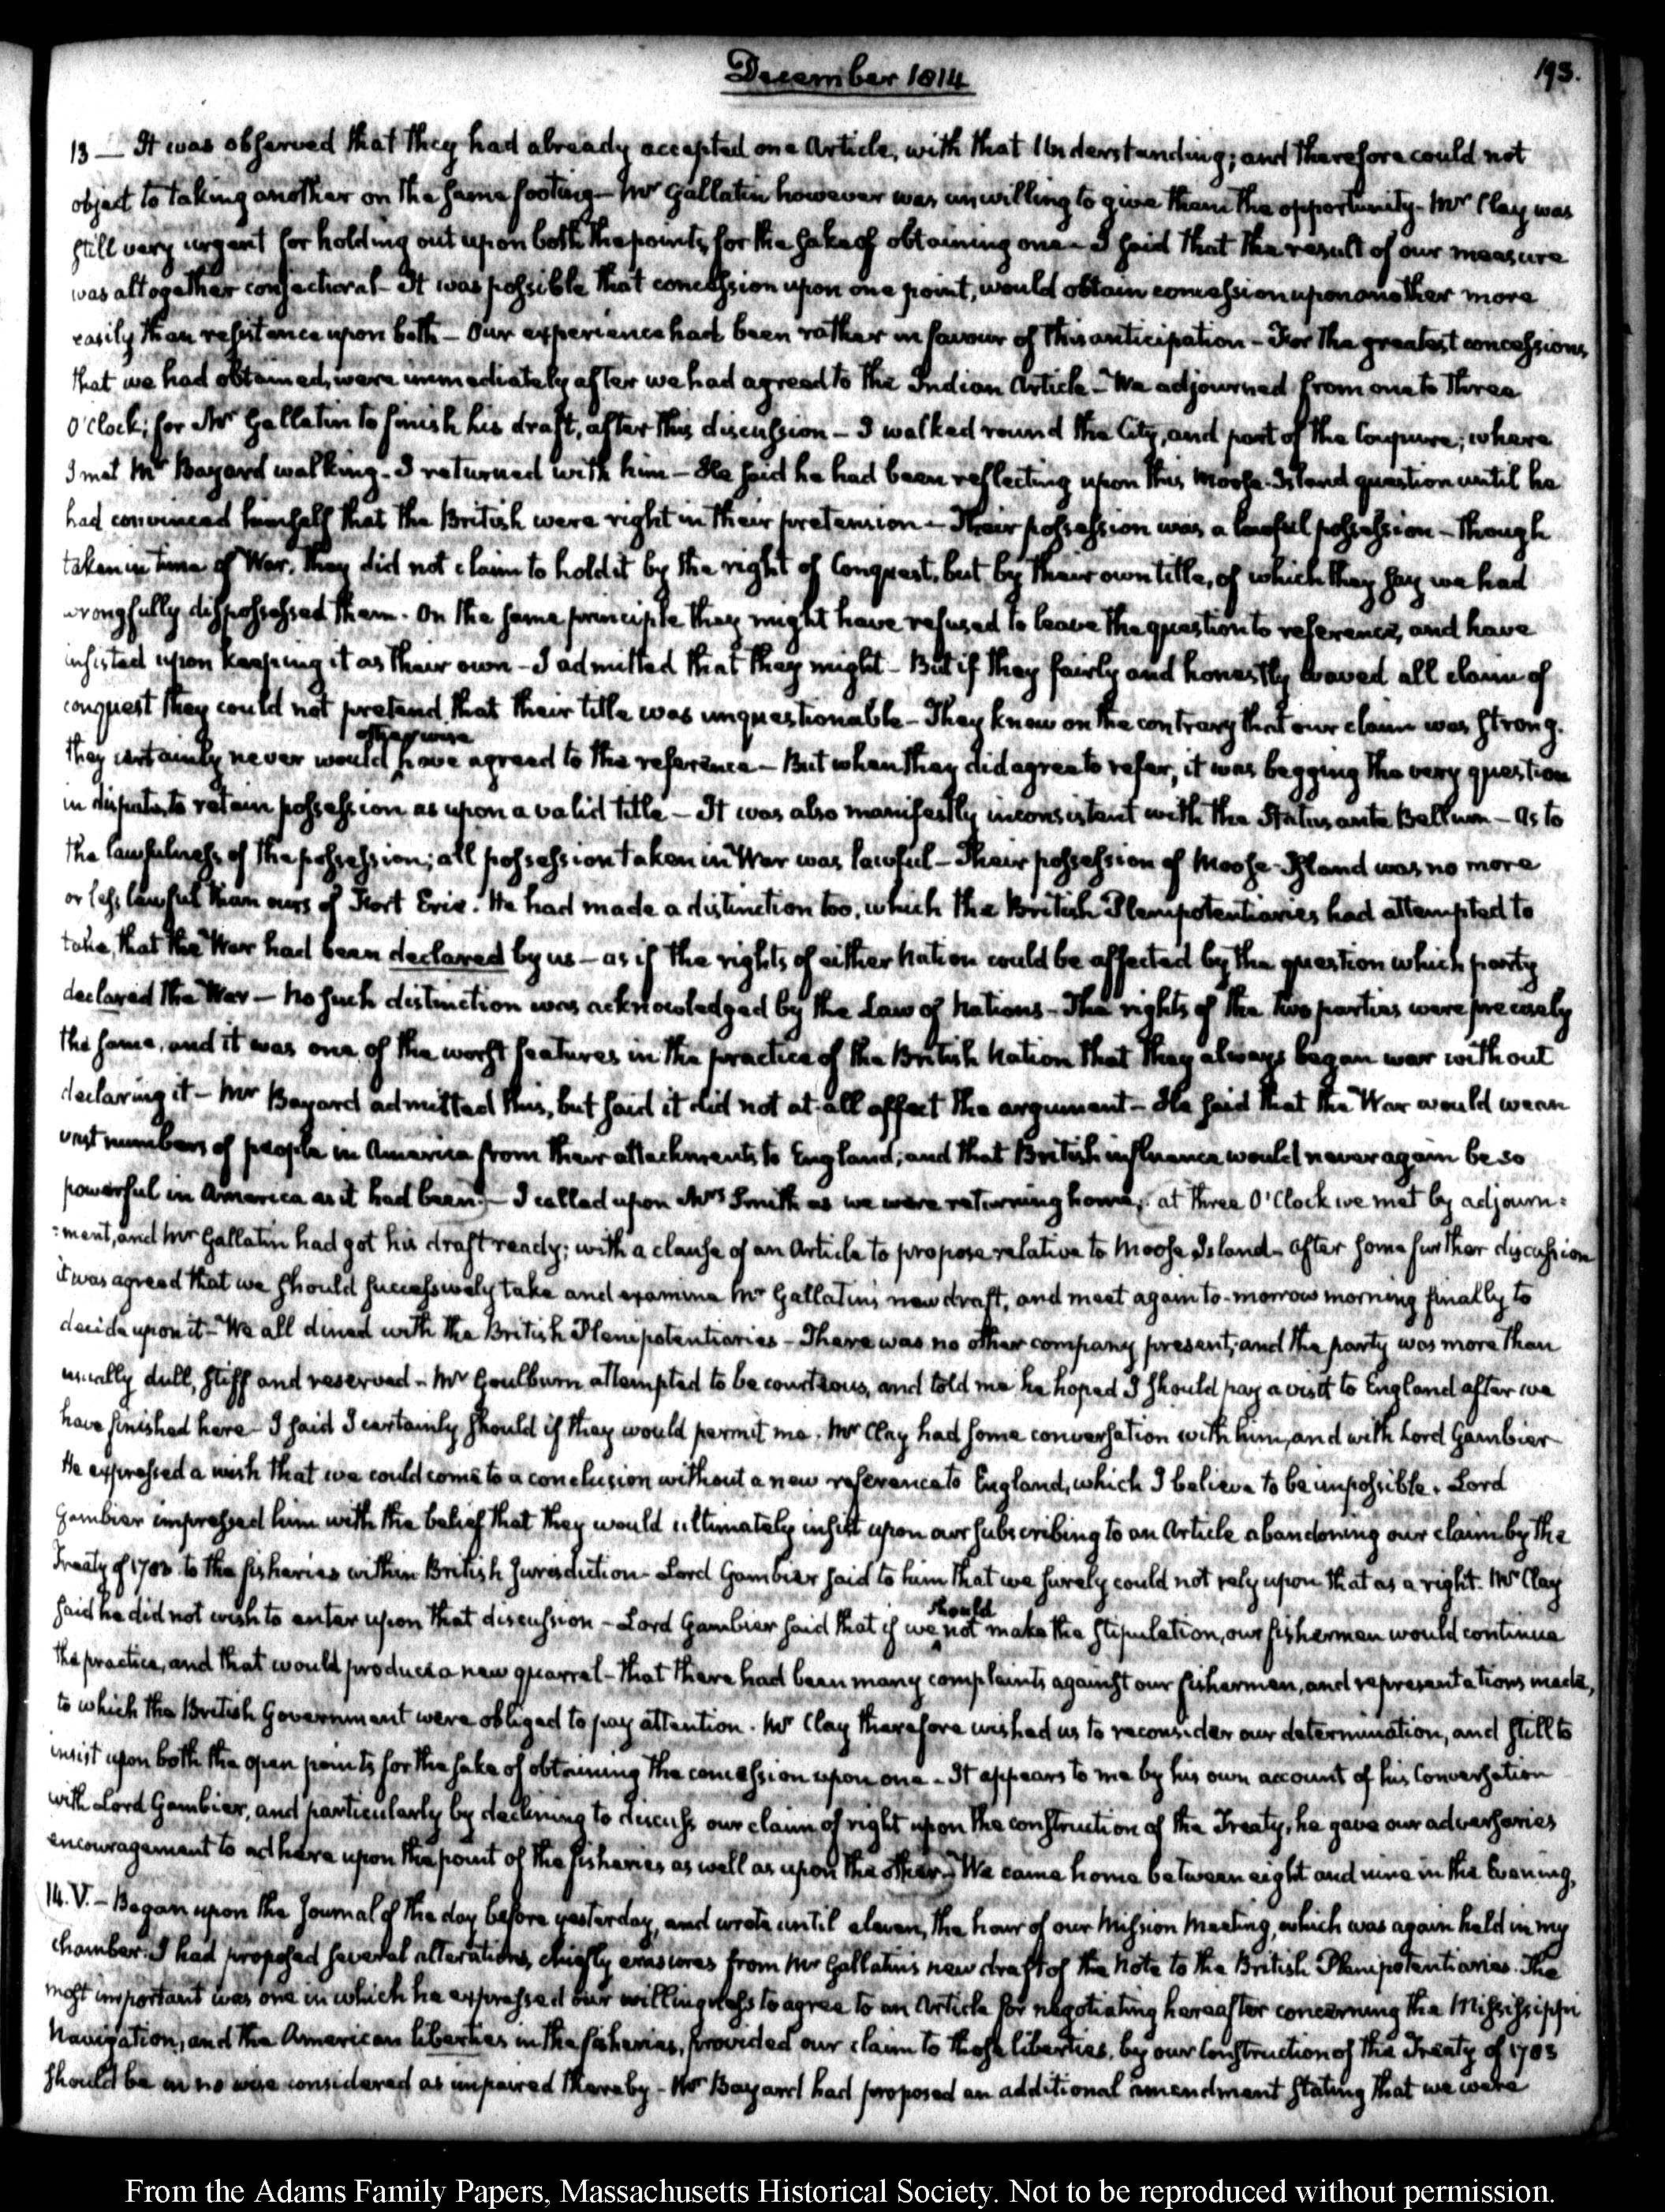 December 1814
193.
13 — It was observed that they had already accepted one Article, with that Understanding; and therefore could not
object to taking another on the same footing — Mr Gallatin however was unwilling to give them the opportunity. Mr Clay was
still very urgent for holding out upon both the points, for the sake of obtaining one — I said that the result of our measure
was altogether conjectural — It was possible that concession upon one point, would obtain concession upon another more
easily than resistance upon both — Our experience had been rather in favour of this anticipation — For the greatest concessions
that we had obtained, were immediately after we had agreed to the Indian Article — We adjourned from one to three
O'Clock; for Mr Gallatin to finish his draft, after this discussion — I walked round the City, and part of the Coupure; where
I met Mr Bayard walking. I returned with him — He said he had been reflecting upon this Moose-Island question until he
had convinced himself that the British were right in their pretension — Their possession was a lawful possession — though
taken in time of War, they did not claim to hold it by the right of Conquest, but by their own title, of which they say we had
wrongfully dispossessed them. On the same principle they might have refused to leave the question to reference, and have
insisted upon keeping it as their own — I admitted that they might — But if they fairly and honestly waved all claim of
conquest they could not pretend that their title was unquestionable — They knew on the contrary that our claim was strong.
they certainly never would otherwise have agreed to the reference — But when they did agree to refer, it was begging the very question
in dispute, to retain possession as upon a valid title — It was also manifestly inconsistent with the Status ante Bellum — As to
the lawfulness of the possession; all possession taken in War was lawful — Their possession of Moose-Island was no more
or less lawful than ours of Fort Erie. He had made a distinction too, which the British Plenipotentiaries had attempted to
take, that the War had been declared by us — as if the rights of either Nation could be affected by the question which party
declared the War — No such distinction was acknowledged by the Law of Nations — The rights of the two parties were precisely
the same, and it was one of the worst features in the practice of the British Nation that they always began war without
declaring it — Mr Bayard admitted this, but said it did not at all affect the argument — He said that the War would wean
vast numbers of people in America from their attachments to England; and that British influence would never again be so
powerful in America as it had been — I called upon Mrs Smith as we were returning home; at three O'Clock we met by adjourn=
=ment, and Mr Gallatin had got his draft ready; with a clause of an Article to propose relative to Moose Island — After some further discussion
it was agreed that we should successively take and examine Mr Gallatin's new draft, and meet again to-morrow morning finally to
decide upon it — We all dined with the British Plenipotentiaries — There was no other company present; and the party was more than
usually dull, stiff and reserved — Mr Goulburn attempted to be courteous, and told me he hoped I should pay a visit to England after we
have finished here — I said I certainly should if they would permit me. Mr Clay had some conversation with him, and with Lord Gambier
He expressed a wish that we could come to a conclusion without a new reference to England, which I believe to be impossible. Lord
Gambier impressed him with the belief that they would ultimately insist upon our subscribing to an Article abandoning our claim by the
Treaty of 1783 to the fisheries within British Jurisdiction — Lord Gambier said to him that we surely could not rely upon that as a right. Mr Clay
said he did not wish to enter upon that discussion — Lord Gambier said that if we should not make the stipulation, our fishermen would continue
the practice, and that would produce a new quarrel — that there had been many complaints against our fishermen, and representations made,
to which the British Government were obliged to pay attention. Mr Clay therefore wished us to reconsider our determination, and still to
insist upon both the open points for the sake of obtaining the concession upon one — It appears to me by his own account of his Conversation
with Lord Gambier, and particularly by declining to discuss our claim of right upon the construction of the Treaty, he gave our adversaries
encouragement to adhere upon the point of the fisheries as well as upon the other — We came home between eight and nine in the Evening.
14. V. — Began upon the Journal of the day before yesterday, and wrote until eleven, the hour of our Mission Meeting, which was again held in my
chamber. I had proposed several alterations, chiefly erasures from Mr Gallatin's new draft of the Note to the British Plenipotentiaries. The
most important was one in which he expressed our willingness to agree to an Article for negotiating hereafter concerning the Mississippi
Navigation, and the American liberties in the fisheries, provided our claim to those liberties, by our construction of the Treaty of 1783
should be in no wise considered as impaired thereby — Mr Bayard had proposed an additional amendment stating that we were
From the Adams Family Papers, Massachusetts Historical Society. Not to be reproduced without permission.